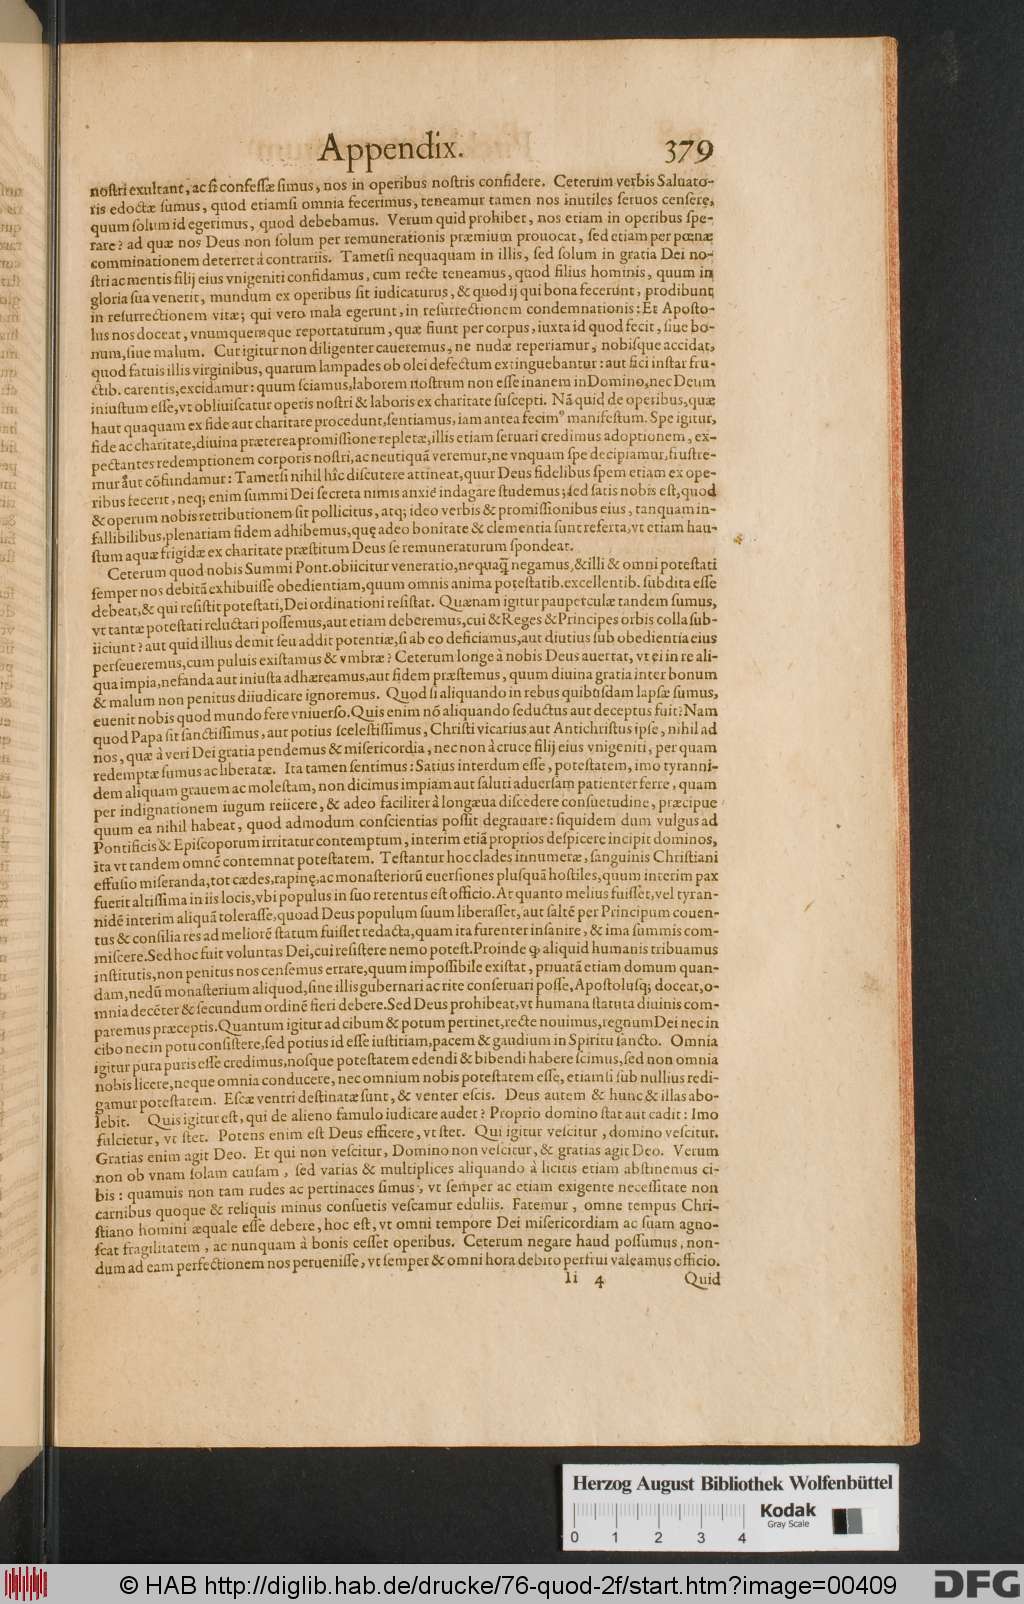 Appendix. 379
nostri exultant, ac si confessæ simus, nos in operibus nostris confidere. Ceterum verbis Saluato-
ris edoctæ sumus, quod etiamsi omnia fecerimus, teneamur tamen nos inutiles seruos censere,
quum solum id egerimus, quod debebamus. Verum quid prohibet, nos etiam in operibus spe-
rare? ad quæ nos Deus non solum per remunerationis præmium prouocat, sed etiam per pœnæ
comminationem deterret à contrariis. Tametsi nequaquam in illis, sed solum in gratia Dei no-
stri ac mentis filij eius vnigeniti confidamus, cum recte teneamus, quod filius hominis, quum in
gloria sua venerit, mundum ex operibus sit iudicaturus, & quod ij qui bona fecerunt, prodibunt
in resurrectionem vitæ; qui vero mala egerunt, in resurrectionem condemnationis: Et Aposto-
lus nos doceat, vnumquemque reportaturum, quæ fiunt per corpus, iuxta id quod fecit, siue bo-
num, siue malum. Cur igitur non diligenter caueremus, ne nudæ reperiamur, nobisque accidat,
quod fatuis illis virginibus, quarum lampades ob olei defectum extinguebantur: aut fici instar fru-
ctib. carentis, excidamur: quum sciamus, laborem nostrum non esse inanem in Domino, nec Deum
iniustum esse, vt obliuiscatur operis nostri & laboris ex charitate suscepti. Nã quid de operibus, quæ
haut quaquam ex fide aut charitate procedunt, sentiamus, iam antea fecimꝰ manifestum. Spe igitur,
fide ac charitate, diuina præterea promissione repletæ, illis etiam seruari credimus adoptionem, ex-
pectantes redemptionem corporis nostri, ac neutiquã veremur, ne vnquam spe decipiamur, frustre-
mur aut cõfundamur: Tametsi nihil hîc discutere attineat, quur Deus fidelibus spem etiam ex ope-
ribus fecerit, neq; enim summi Dei secreta nimis anxie indagare studemus; sed satis nobis est, quod
& operum nobis retributionem sit pollicitus, atq; ideo verbis & promissionibus eius, tanquam in-
fallibilibus, plenariam fidem adhibemus, quę adeo bonitate & clementia sunt referta, vt etiam hau-
stum aquæ frigidæ ex charitate præstitum Deus se remuneraturum spondeat.
Ceterum quod nobis Summi Pont. obiicitur veneratio, nequaq̃ negamus, & illi & omni potestati
semper nos debitã exhibuisse obedientiam, quum omnis anima potestatib. excellentib. subdita esse
debeat, & qui resistit potestati, Dei ordinationi resistat. Quænam igitur pauperculæ tandem sumus,
vt tantæ potestati reluctari possemus, aut etiam deberemus, cui & Reges & Principes orbis colla sub-
iiciunt? aut quid illius demit seu addit potentiæ, si ab eo deficiamus, aut diutius sub obedientia eius
perseueremus, cum puluis existamus & vmbræ? Ceterum longe à nobis Deus auertat, vt ei in re ali-
qua impia, nefanda aut iniusta adhæreamus, aut fidem præstemus, quum diuina gratia inter bonum
& malum non penitus diiudicare ignoremus. Quod si aliquando in rebus quibusdam lapsæ sumus,
euenit nobis quod mundo fere vniuerso. Quis enim nõ aliquando seductus aut deceptus fuit? Nam
quod Papa sit sanctissimus, aut potius scelestissimus, Christi vicarius aut Antichristus ipse, nihil ad
nos, quæ à veri Dei gratia pendemus & misericordia, nec non à cruce filij eius vnigeniti, per quam
redemptæ sumus ac liberatæ. Ita tamen sentimus: Satius interdum esse, potestatem, imo tyranni-
dem aliquam grauem ac molestam, non dicimus impiam aut saluti aduersam patienter ferre, quam
per indignationem iugum reiicere, & adeo faciliter à longæua discedere consuetudine, præcipue
quum ea nihil habeat, quod admodum conscientias possit degrauare: siquidem dum vulgus ad
Pontificis & Episcoporum irritatur contemptum, interim etiã proprios despicere incipit dominos,
ita vt tandem omnẽ contemnat potestatem. Testantur hoc clades innumeræ, sanguinis Christiani
effusio miseranda, tot cædes, rapinę, ac monasteriorũ euersiones plusquã hostiles, quum interim pax
fuerit altissima in iis locis, vbi populus in suo retentus est officio. At quanto melius fuisset, vel tyran-
nidẽ interim aliquã tolerasse, quoad Deus populum suum liberasset, aut saltẽ per Principum couen-
tus & consilia res ad meliorẽ statum fuisset redacta, quam ita furenter insanire, & ima summis com-
miscere. Sed hoc fuit voluntas Dei, cui resistere nemo potest. Proinde ꝙ aliquid humanis tribuamus
institutis, non penitus nos censemus errare, quum impossibile existat, priuatã etiam domum quan-
dam, nedũ monasterium aliquod, sine illis gubernari ac rite conseruari posse, Apostolusq; doceat, o-
mnia decẽter & secundum ordinẽ fieri debere. Sed Deus prohibeat, vt humana statuta diuinis com-
paremus præceptis. Quantum igitur ad cibum & potum pertinet, recte nouimus, regnum Dei nec in
cibo nec in potu consistere, sed potius id esse iustitiam, pacem & gaudium in Spiritu sancto. Omnia
igitur pura puris esse credimus, nosque potestatem edendi & bibendi habere scimus, sed non omnia
nobis licere, neque omnia conducere, nec omnium nobis potestatem esse, etiamsi sub nullius redi-
gamur potestatem. Escæ ventri destinatæ sunt, & venter escis. Deus autem & hunc & illas abo-
lebit. Quis igitur est, qui de alieno famulo iudicare audet? Proprio domino stat aut cadit: Imo
fulcietur, vt stet. Potens enim est Deus efficere, vt stet. Qui igitur vescitur, domino vescitur.
Gratias enim agit Deo. Et qui non vescitur, Domino non vescitur, & gratias agit Deo. Verum
non ob vnam solam causam, sed varias & multiplices aliquando à licitis etiam abstinemus ci-
bis: quamuis non tam rudes ac pertinaces simus, vt semper ac etiam exigente necessitate non
carnibus quoque & reliquis minus consuetis vescamur eduliis. Fatemur, omne tempus Chri-
stiano homini æquale esse debere, hoc est, vt omni tempore Dei misericordiam ac suam agno-
scat fragilitatem, ac nunquam à bonis cesset operibus. Ceterum negare haud possumus, non-
dum ad eam perfectionem nos peruenisse, vt semper & omni hora debito perfrui valeamus officio.
Ii 4 Quid
Herzog August Bibliothek Wolfenbüttel
Kodak
Gray Scale
0 1 2 3 4
© HAB http://diglib.hab.de/drucke/76-quod-2f/start.htm?image=00409
DFG